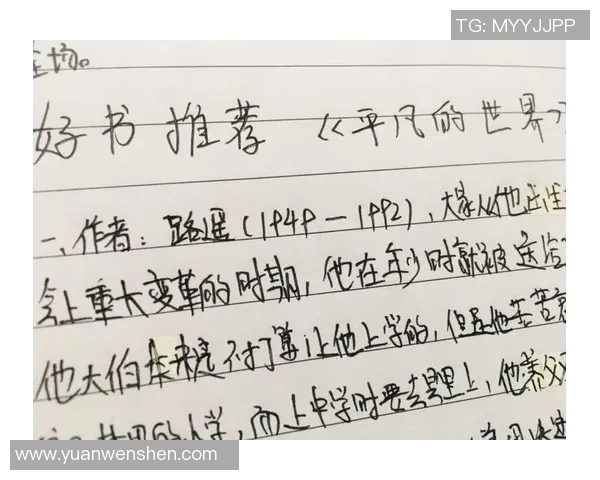 TG: MYYJJPP
好书推荐《平凡的世界》
一、作者：路遥(1949—1992)，大家从他
会上重大变革的时期，他在年少时就被送给
他大伯本来是不打算让他上学的，但是他苦苦
的小学，而上中学时要去县里上，他养父
www.yuanwenshen.com